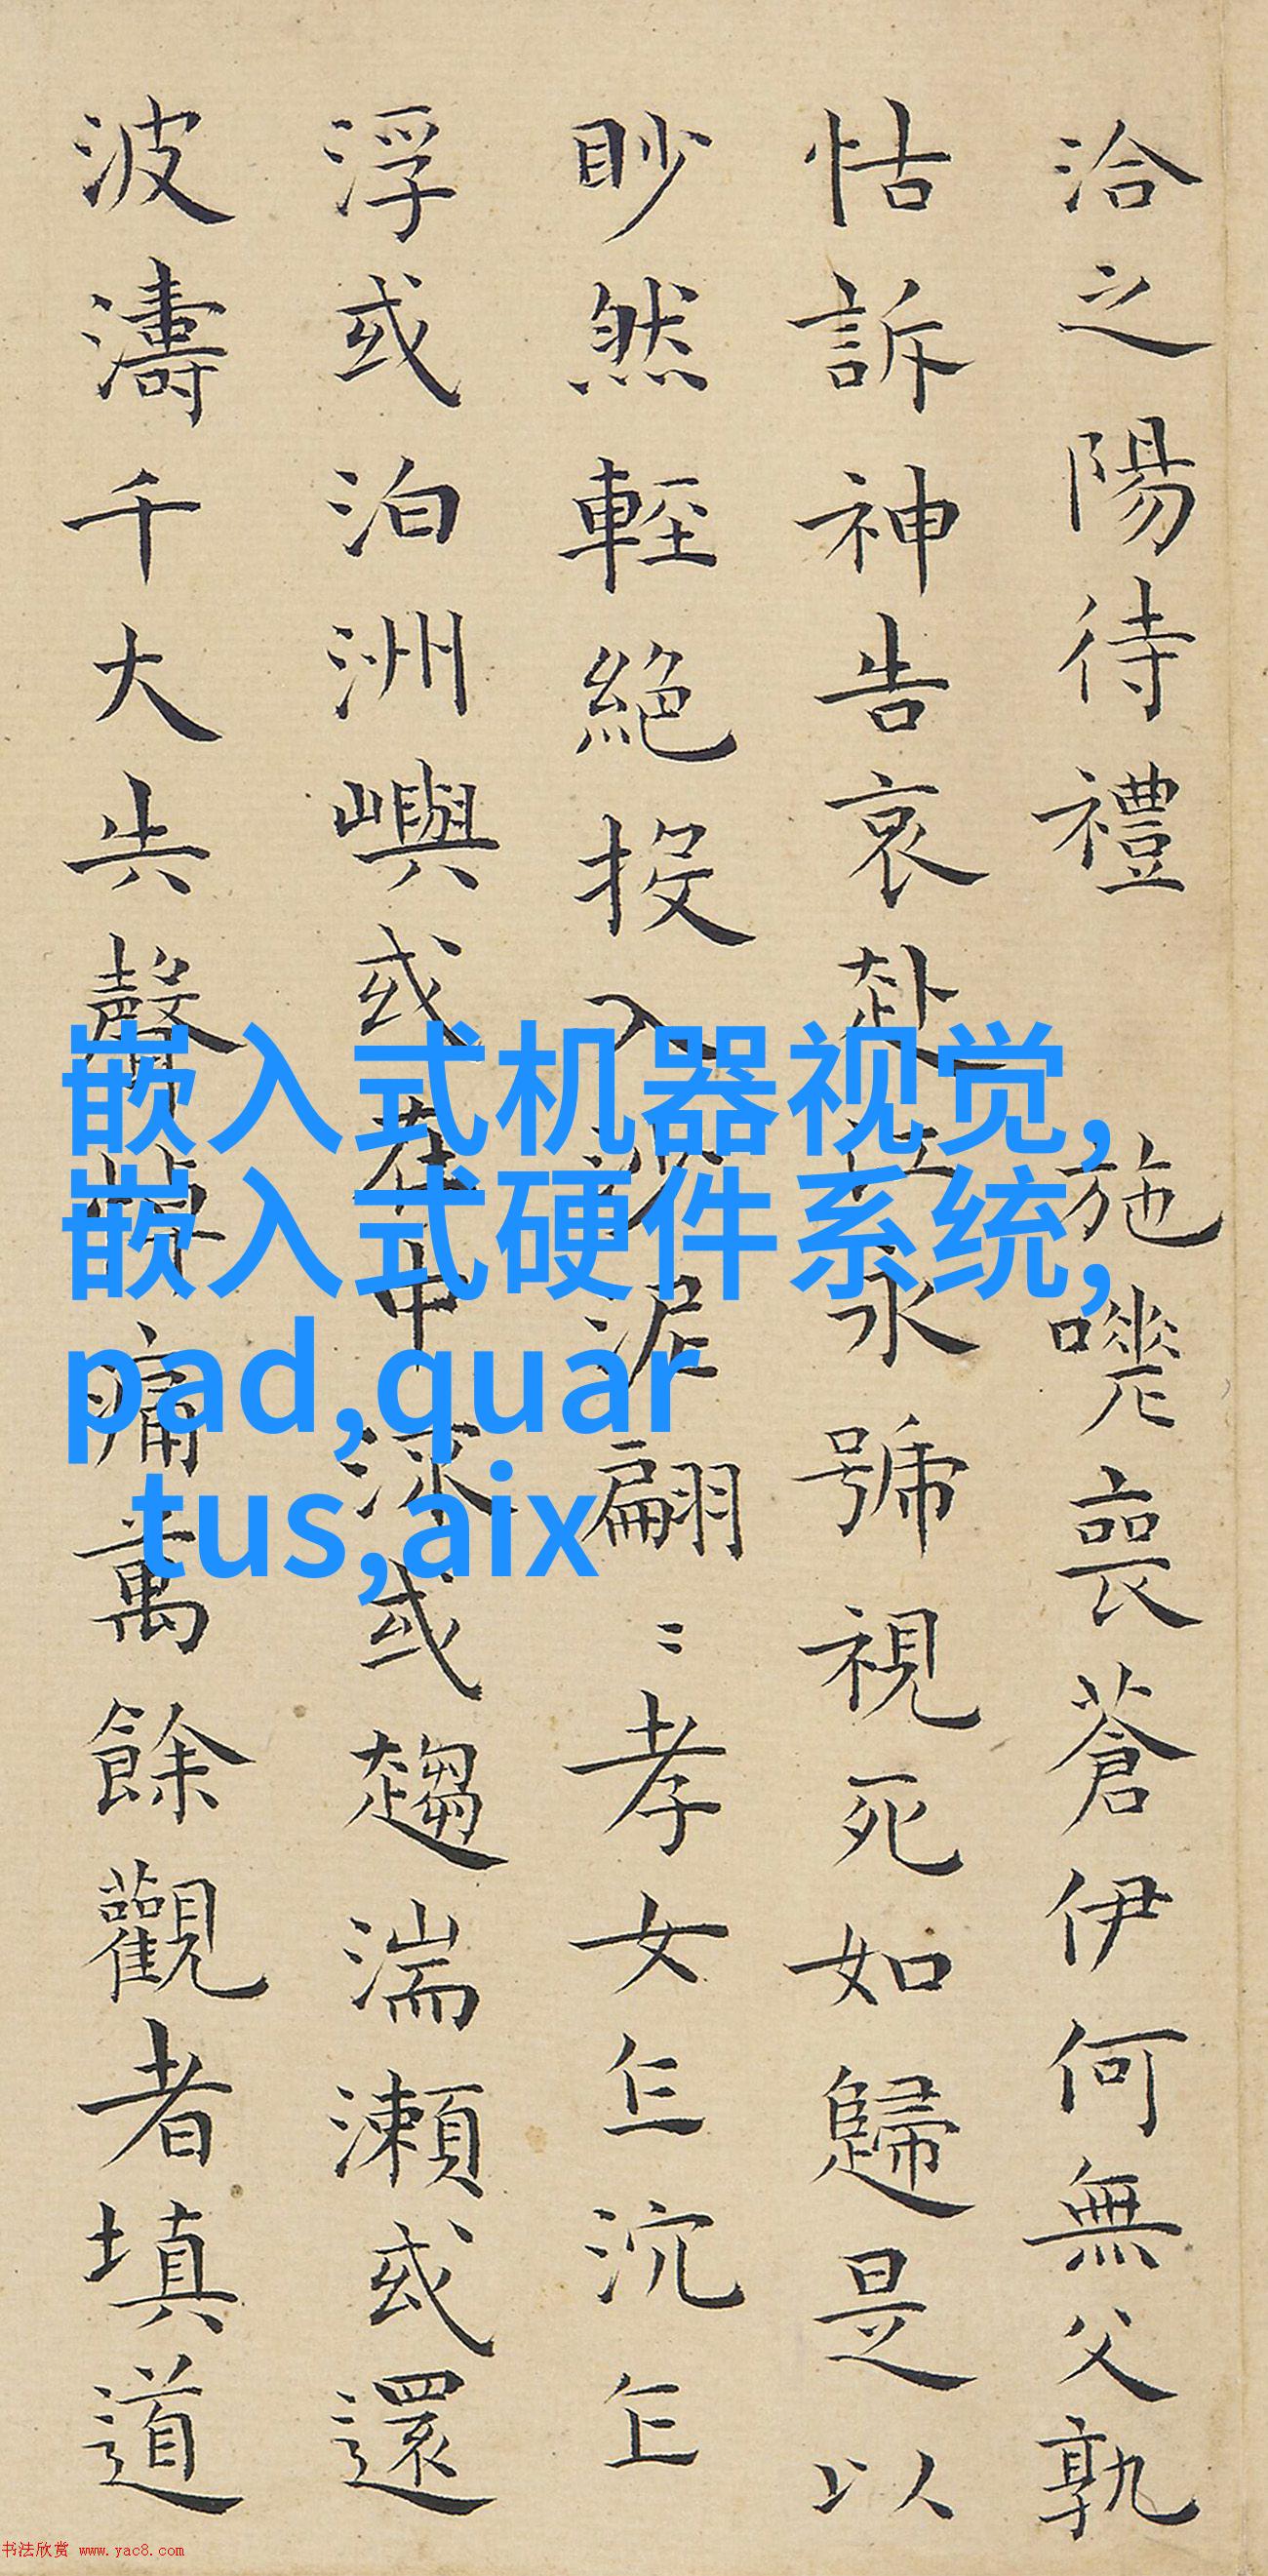 洽之陽待禮 施嗟喪蒼伊何無父孰
怙訴神告哀赴江永號視死如歸是以
眇然輕絕投入沙泥翩〻孝女乍沉乍
浮或泊洲嶼或在中流或趨湍瀨或還
波濤千大失聲悼痛萬餘觀者填道
嵌入式机器视觉,
嵌入式硬件系统,
pad,quar
tus,aix
书法欣赏 www.yac8.com